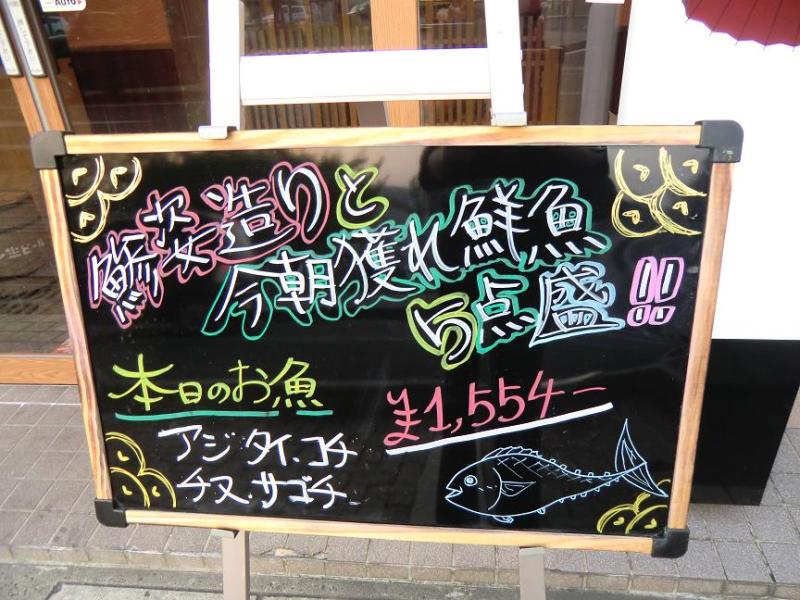 鯵姿造りと
今朝獲れ鮮魚
5点盛!!
本日のお魚
アジ・タイ・コチ
チヌ・サゴチ
¥1,554-
AUTO
生ビール